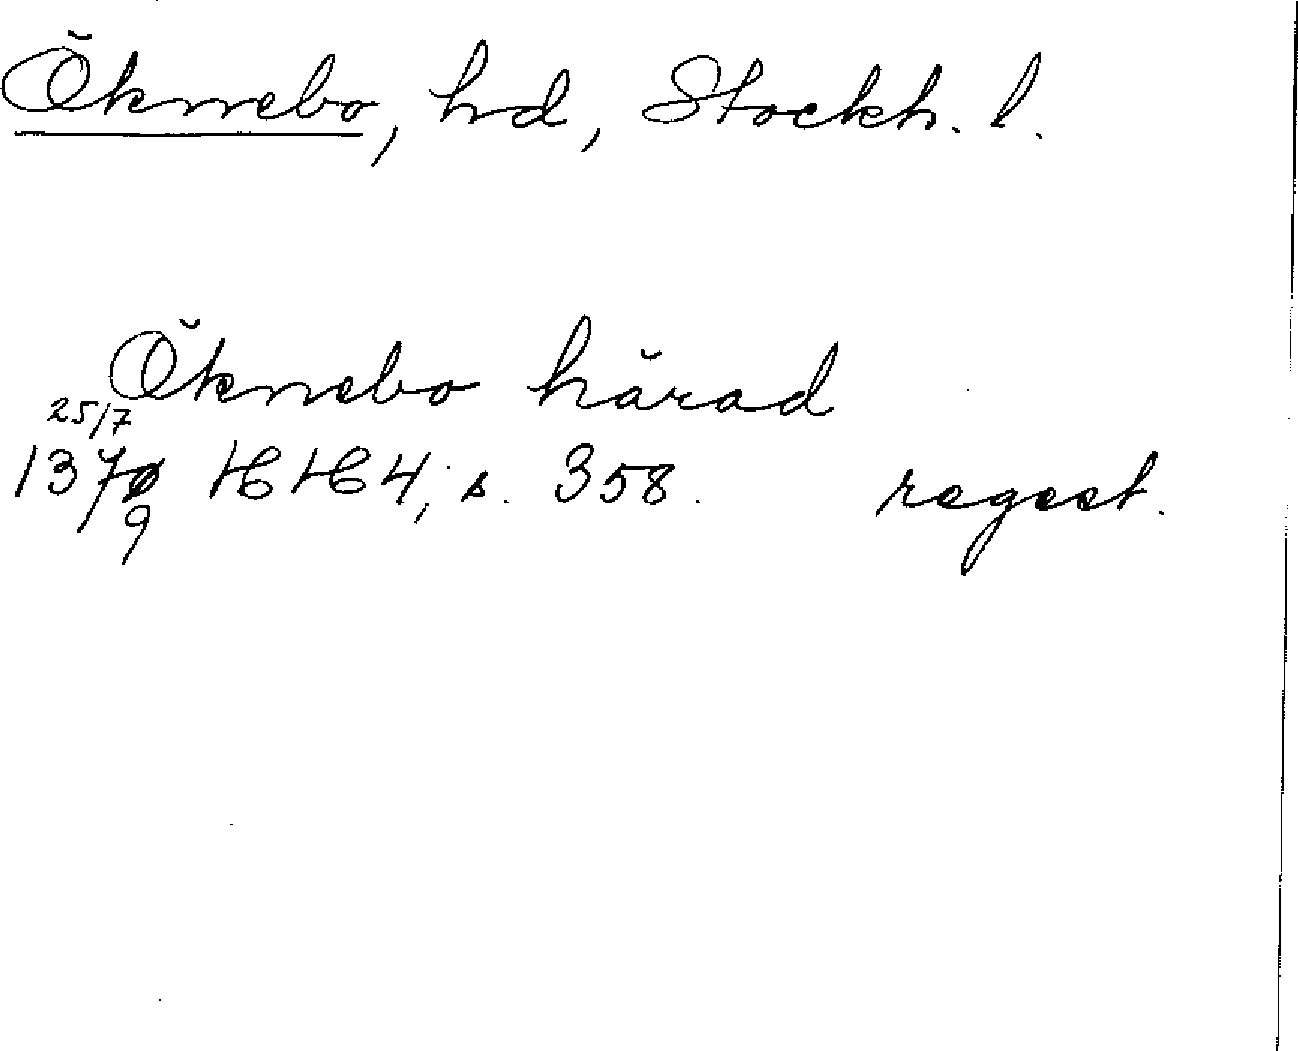 Öknebo, hd, Stockh. l.
Öknebo härad
25/7
1379 HH 4, s. 358. regest.